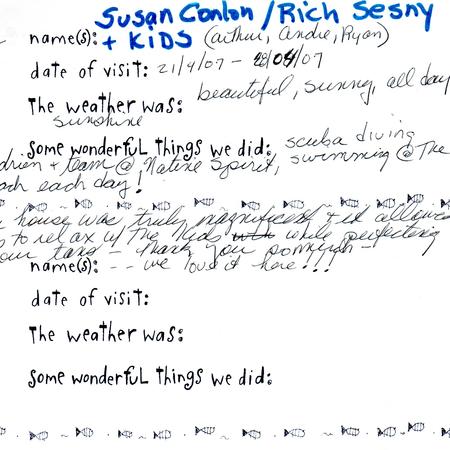 Susan Conlon / Rich Sesny
name(s): + KIDS (Arthur, Andre, Ryan)
date of visit: 21/4/07 - 28/04/07
The weather was: beautiful, sunny, all day
sunshine
some wonderful things we did: scuba diving
drien + team @ Native Spirit, swimming @ The
ach each day!
house was truly magnificent + it allowed
s to relax w/ The Kids while perfecting
our tans - Thank you
name(s): -- we loved it here!!!
date of visit:
The weather was:
some wonderful things we did: